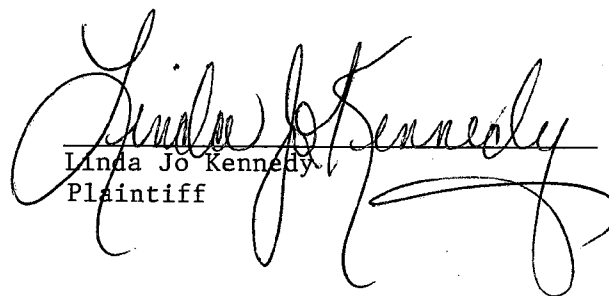 Linda Jo Kennedy
Linda Jo Kennedy
Plaintiff